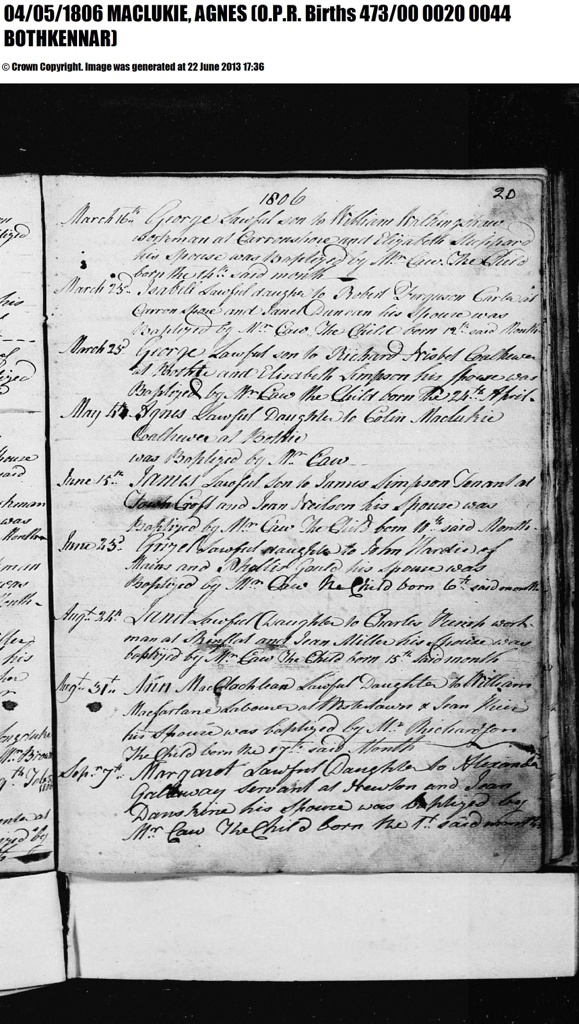 04/05/1806 MACLUKIE, AGNES (O.P.R. Births 473/00 0020 0044
BOTHKENNAR)
© Crown Copyright. Image was generated at 22 June 2013 17:36
1806
20
March 16th George Lawful son to William Walkingshaw
Boatman at Carronshore and Elizabeth Sheppard
his Spouse was Baptized by Mr Caw The Child
born the 14th said month
March 23d Isabell Lawful daughter to Robert Ferguson Carter at
Carron Shore and Janet Duncan his Spouse was
Baptized by Mr Caw The Child born 12th said Month
March 25 George Lawful son to Richard Nisbet Coalhewer
at and Elizabeth Simpson his spouse was
Baptized by Mr Caw the Child born the 24th April
May 4th Agnes Lawful Daughter to Colin Maclukie
Coalhewer at Bothie
was Baptized by Mr Caw
June 15th James Lawful son to James Simpson Tenant at
Croft and Jean Neilson his Spouse was
Baptized by Mr Caw The Child born 10th said Month
June 23d Grizel Lawful daughter to John Hardie of
Mains and his Spouse was
Baptized by Mr Caw the Child born 6th said month
Augt 24th Janet Lawful Daughter to Charles work-
man at Skinflat and Jean Miller his Spouse was
baptized by Mr Caw The Child born 15th said month
Augt 31st Ann MacClachlean Lawful Daughter to William
Macfarlane Labourer at & Jean
his Spouse was baptized by Mr Richardson
The Child born the 17th said Month
Sepr 7th Margaret Lawful Daughter to Alexander
Galloway Servant at Newton and Jean
Danskine his Spouse was Baptized by
Mr Caw The Child born the 1st said month